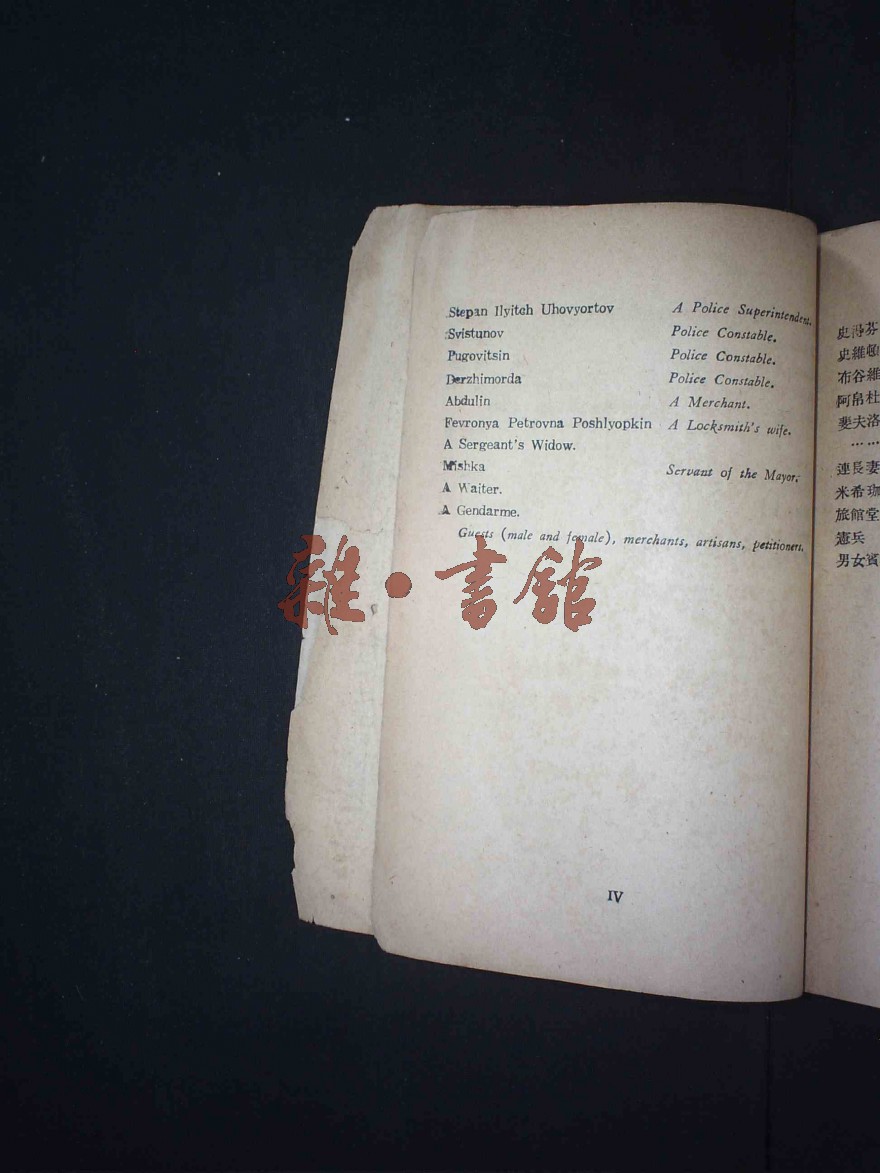 Stepan Ilyitch Uhovyortov A Police Superintendent.
Svistunov Police Constable.
Pugovitsin Police Constable.
Derzhimorda Police Constable.
Abdulin A Merchant.
Fevronya Petrovna Poshlyopkin A Locksmith's wife.
A Sergeant's Widow.
Mishka Servant of the Mayor.
A Waiter.
A Gendarme.
Guests (male and female), merchants, artisans, petitioners.
雜·書館
IV
史維
布谷維
阿帛杜
斐夫洛
……
連長妻
米希珈
旅館堂
憲兵
男女賓